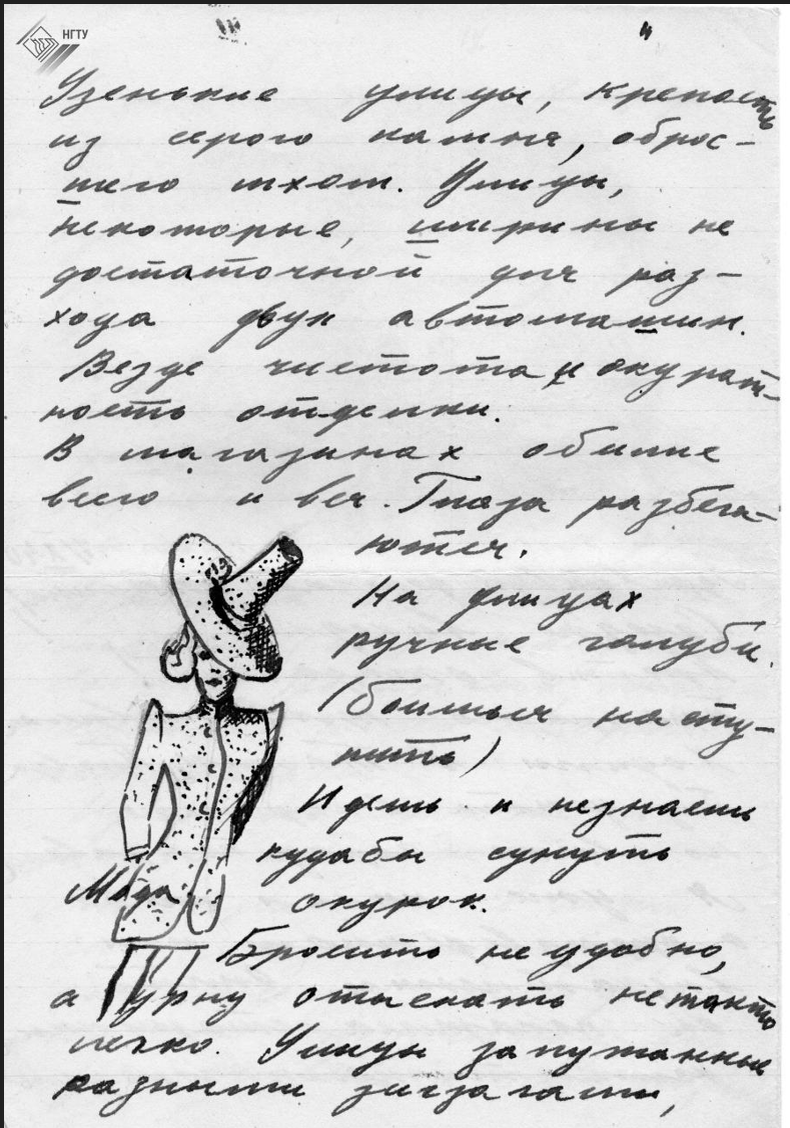 НГТУ
Узенькие улицы, крепость
из серого камня, оброс-
шего мхом. Улицы,
некоторые, ширины не
достаточной для раз-
хода двух автомашин.
Везде чистота и окурат-
ность отделки.
В магазинах обилие
всего и вся. Глаза разбега-
ются.
На улицах
ручные голуби.
(боишься насту-
пить)
Идешь и незнаешь
кудабы сунуть
окурок.
Мода
Бросить неудобно,
а урну отыскать нетакто
легко. Улицы запутанные
разными зигзагами,